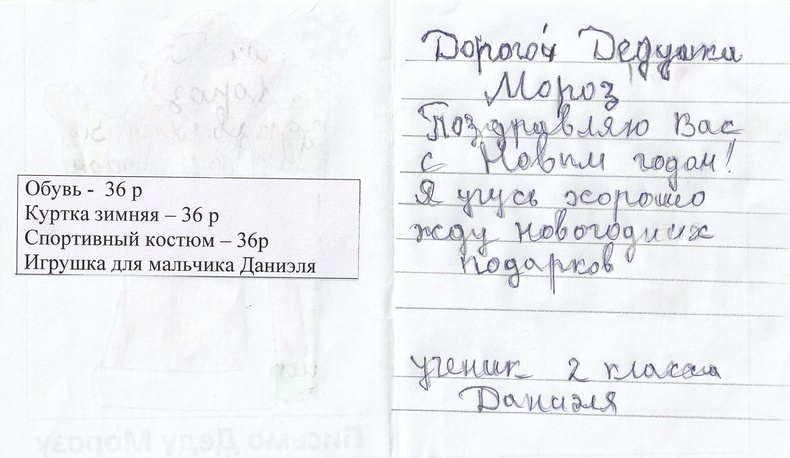 Обувь - 36 р
Куртка зимняя – 36 р
Спортивный костюм – 36р
Игрушка для мальчика Даниэля
Дорогой Дедушка
Мороз
Поздравляю Вас
с Новым годом!
Я учусь хорошо
жду новогодних
подарков
ученик 2 класса
Даниэля
Письмо Деду Морозу